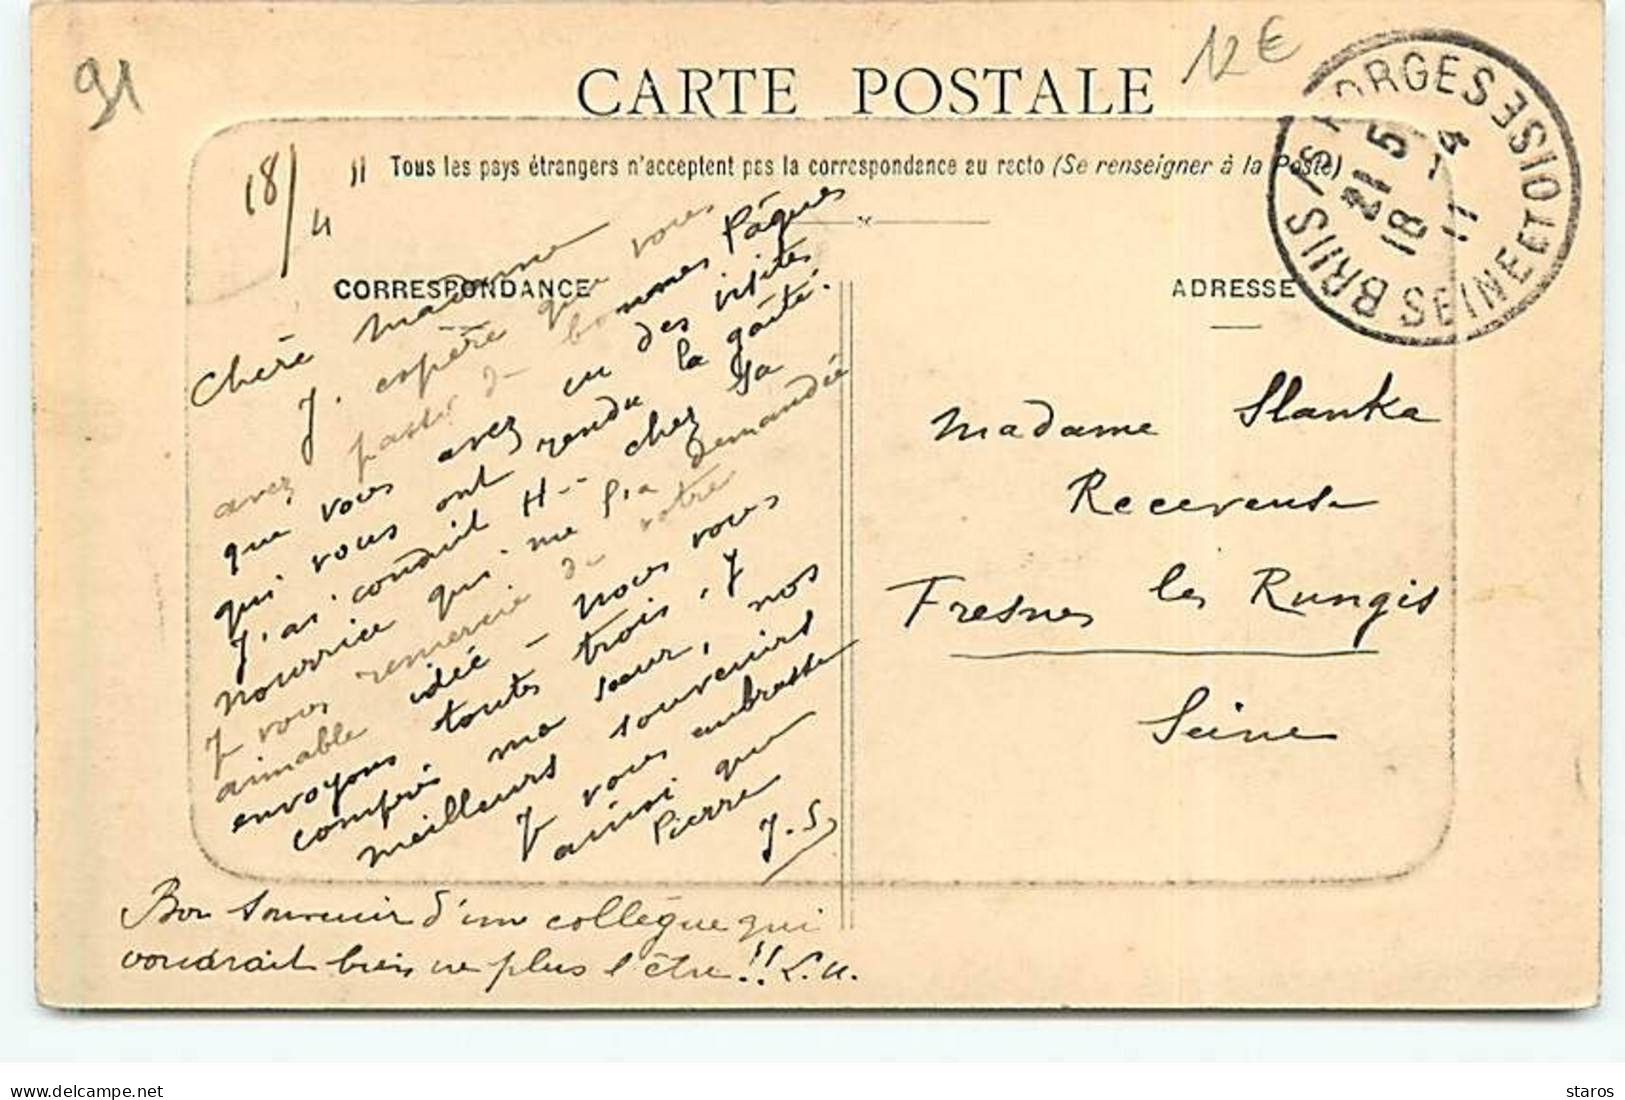 91
12€
CARTE POSTALE
BRIIS / S FORGES
SEINE ET OISE
21 5
18 -4
11
18/4 11
Tous les pays étrangers n'acceptent pas la correspondance au recto (Se renseigner à la Poste)
CORRESPONDANCE
ADRESSE
Chère Madame
J. espère que vous
avez passé de bonnes Pâques
que vous avez eu des visites
qui vous ont rendu la gaîté.
J'ai conduit H-- chez sa
nourrice qui me l'a demandée
Je vous remercie de votre
aimable idée - nous vous
envoyons toutes trois, y
compris ma sœur, nos
meilleurs souvenirs
Je vous embrasse
ainsi que
Pierre
J. S.
Bon souvenir d'une collègue qui
voudrait bien ne plus l'être!! L.U.
Madame Slanka
Receveuse
Fresnes les Rungis
Seine
delcampe.net
staros